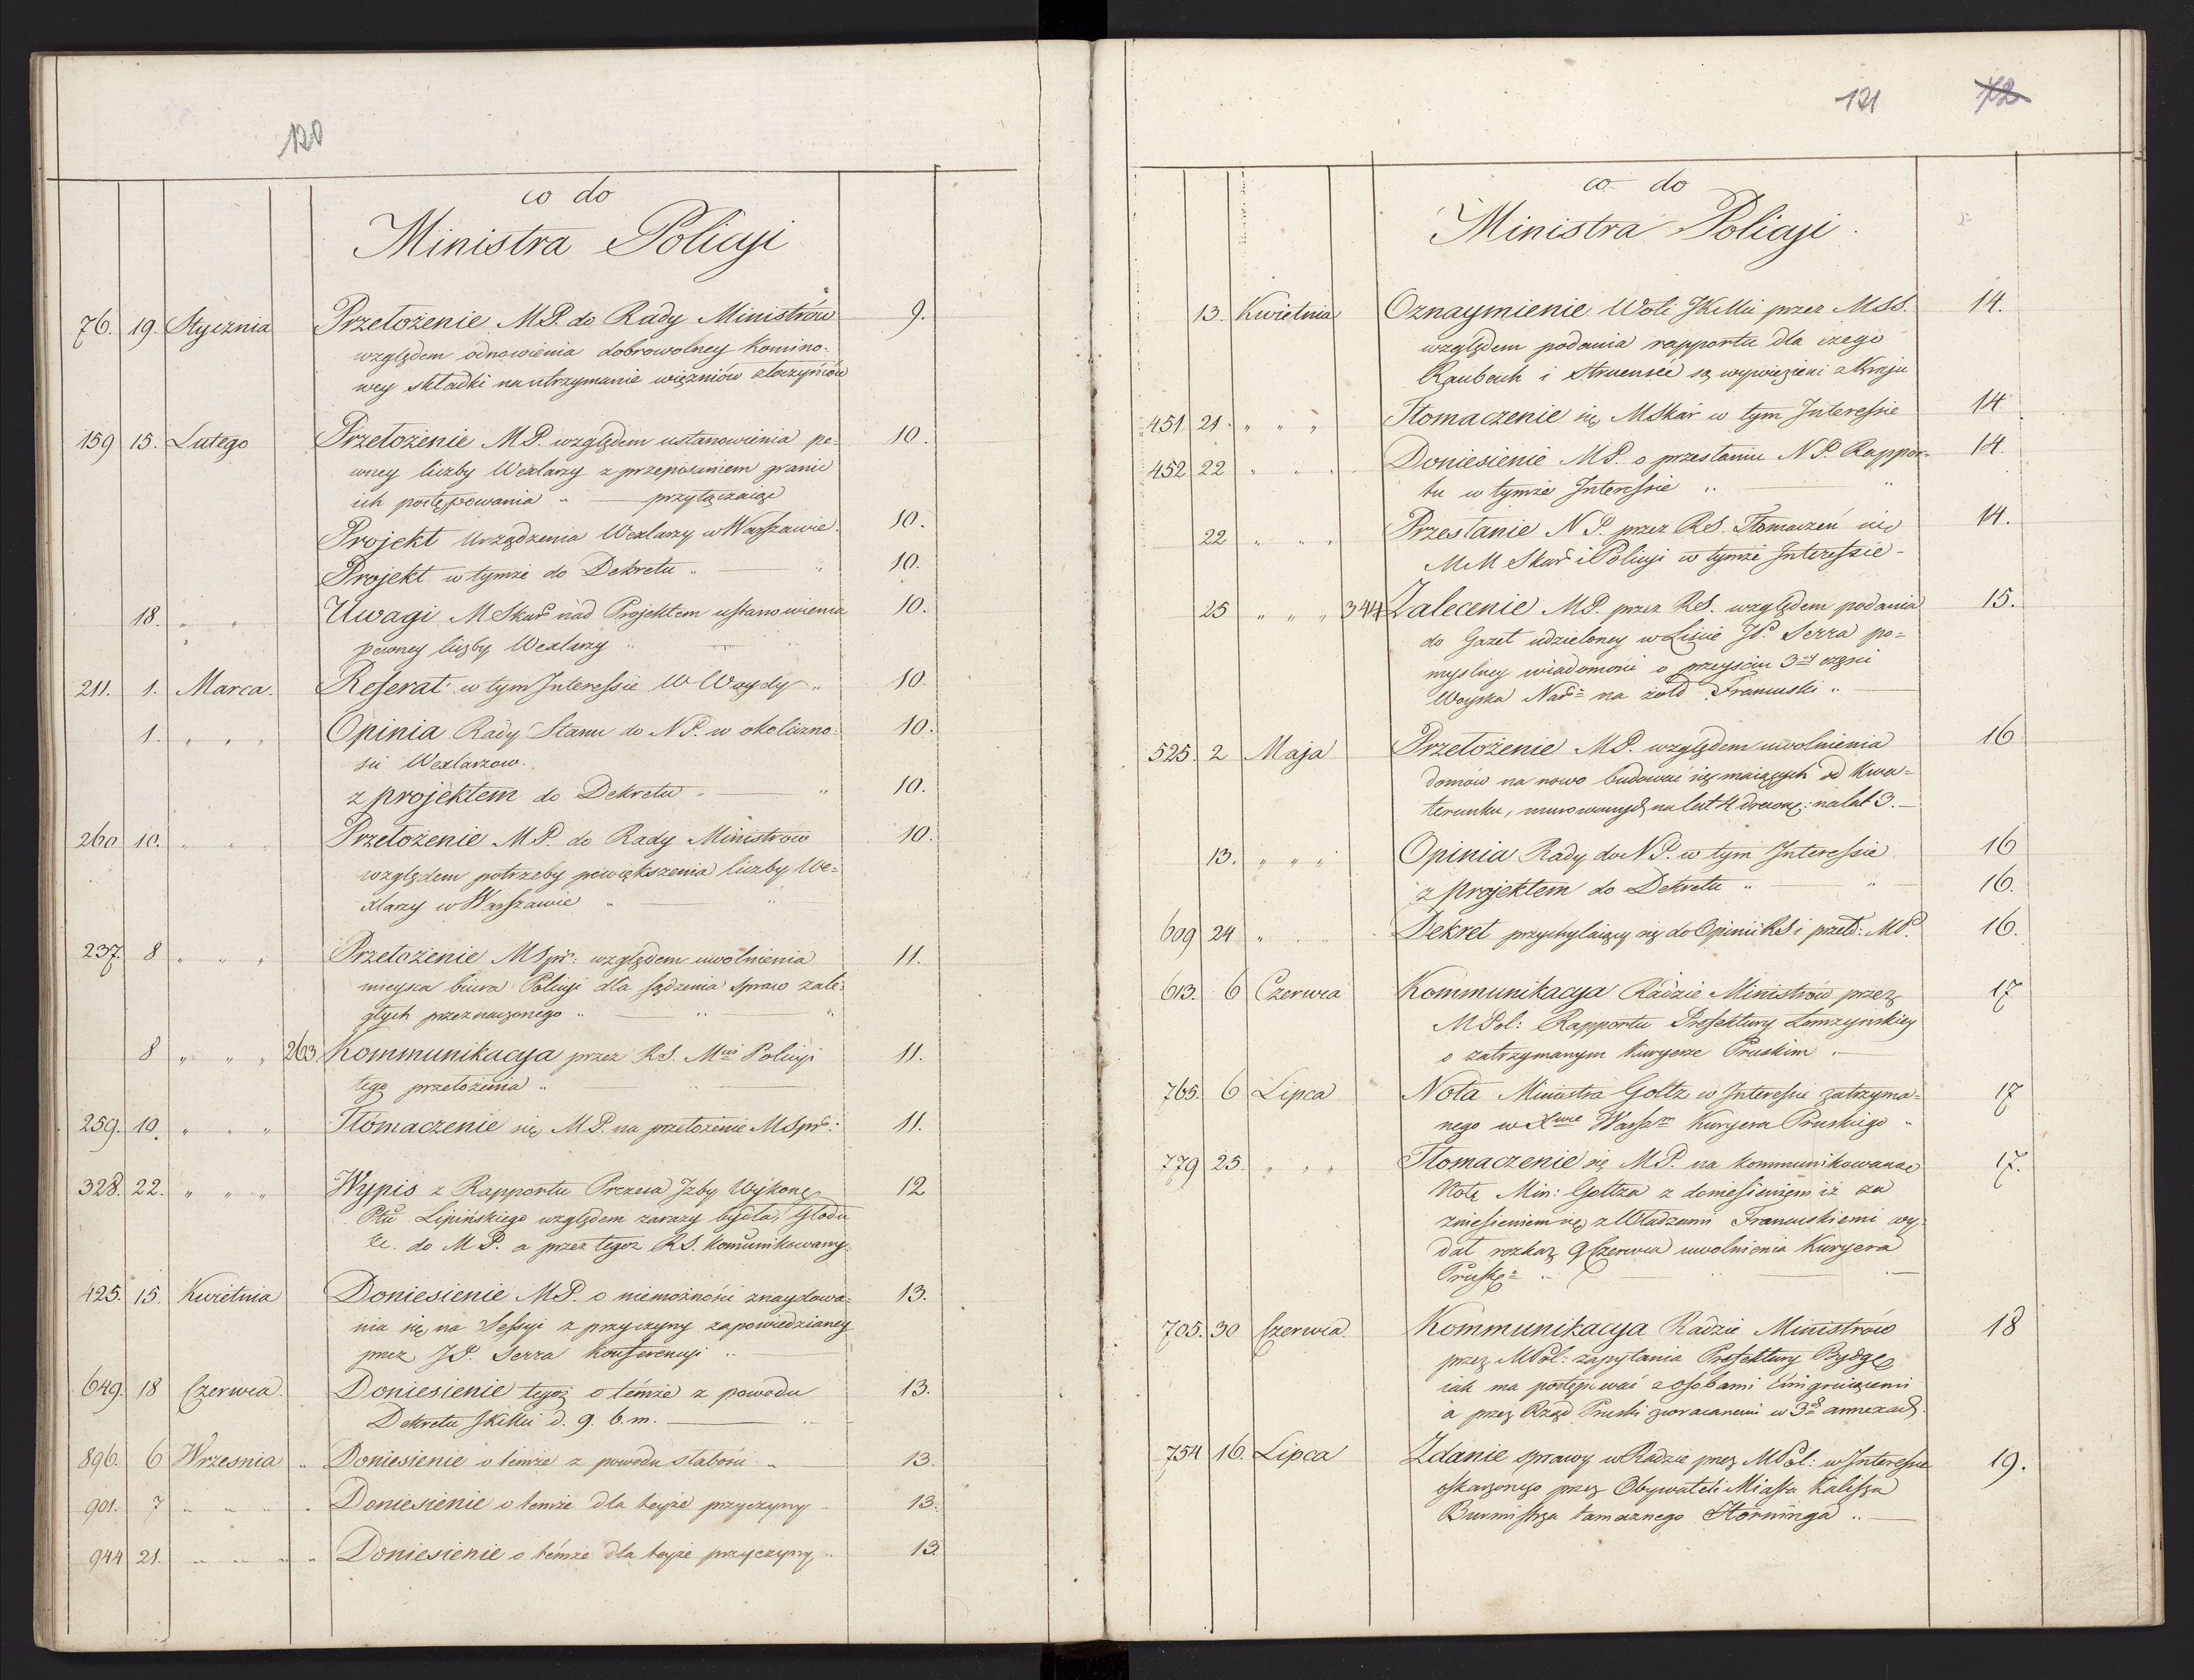 120
co do
Ministra Policyi
76. 19. Stycznia Przełożenie MP. do Rady Ministrów 9.
względem odnowienia dobrowolney Komino-
wey składki na utrzymanie więzniów złoczyńców
159 15. Lutego Przełożenie MP. względem ustanowienia pe- 10.
wney liczby Wexlarzy z przepisaniem granic
ich postępowania " — przyłączaiąc
Projekt Urządzenia Wexlarzy w Warszawie. 10.
Projekt w tymże do Dekretu " — " 10.
18. " " Uwagi M Skar̄ nad Projektem ustanowienia 10.
pewney liczby Wexlarzy "
211. 1. Marca. Referat w tym Interessie W Woydy " 10.
1. " " " Opinia Rady Stanu do N P. w okoliczno- 10.
sci Wexlarzow.
z projektem do Dekretu " — " 10.
260 10. " " " Przełożenie MP. do Rady Ministrów 10.
względem potrzeby powiększenia liczby We-
xlarzy w Warszawie " — "
237. 8 " " " Przełożenie MSpr: względem uwolnienia 11.
mieysca biura Policyi dla sądzenia Spraw zale-
głych przeznaczonego " — " — "
8 " " " 263. Kommunikacya przez RS. Mwi Policyi 11.
tego przełożenia " —
259. 10. " " " Tłomaczenie się MP. na przełożenie MSpr: 11.
328. 22. " " " Wypis z Rapportu Prezesa Izby Wykon 12
Ptu Lipińskiego względem zarazy bydła, Głodu
&c. do MP. a przez tegoz RS. Komunikowany.
425. 15. Kwietnia Doniesienie MP. o niemożności znaydowa- 13.
nia się na Sessyi z przyczyny zapowiedzianey
przez JP. Serra Konferencyi " —
649. 18 Czerwca. Doniesienie tegoż o témże z powodu 13.
Dekretu JKMci d. 9. b.m. —
896. 6 Wrzesnia " Doniesienie o témże z powodu słabości " 13.
901. 7 " " " " Doniesienie o temże dla teyże przyczyny " 13.
944 21. " " " " Doniesienie o témże dla teyże przyczyny " 13.
121 72
co do
Ministra Policyi.
13. Kwietnia Oznaymienie Woli JKMci przez MSS. 14.
względem podania rapportu dla czego
Raubach i Struensée są wywiezieni z Kraju
451 21. " " " Tłomaczenie się MSkar̄ w tym Interessie 14.
452 22 " " " Doniesienie MP. o przesłaniu N P. Rappor- 14.
tu w tymże Interessie " — "
22 " " " Przesłanie N P. przez RS. Tłomaczeń się 14.
MM Skar̄ i Policyi w tymże Interessie -
25 " " " 344 Zalecenie MP. przez RS. względem podania 15.
do Gazet udzieloney w Liście JP. Serra po-
myslney wiadomości o przeyściu 3ey części
Woyska Nar̄ na żołd Francuski " —
525. 2 Maja Przełożenie MP. względem uwolnienia 16
domów na nowo budować się maiących od Kwa-
terunku, murowanych na lat 4 drewn: na lat 3. —
13. " " " Opinia Rady do N P. w tym Interessie 16
z projektem do Dekretu " — " 16.
609 24 " " " Dekret przychylaiący się do Opinii RS i przeł: MP. 16.
613. 6 Czerwca Kommunikacya Radzie Ministrów przez 17
MPol: Rapportu Prefektury Łomzynskiey
o zatrzymanym Kuryerze Pruskim " —
765. 6 Lipca Nota Ministra Goltz w Interessie zatrzyma- 17
nego w Xwie Warsm Kuryera Pruskiego "
779 25. " " " Tłomaczenie się MP. na kommunikowana 17.
Notę Min: Goltza z doniesieniem iż za
zniesieniem się z Władzami Francuskiemi wy-
dał rozkaz 9 Czerwca uwolnienia Kuryera
Prusk " —
705. 30 Czerwca Kommunikacya Radzie Ministrów 18
przez MPol: zapytania Prefektury Bydg
iak ma postępować z osobami Emigruiącemi
a przez Rząd Pruski zwracanemi w 3ch annexach.
754 16. Lipca Zdanie sprawy w Radzie przez MPol: w Interessie 19.
oskarżonego przez Obywateli Miasta Kalisza
Burmistrza tamecznego Horninga " —